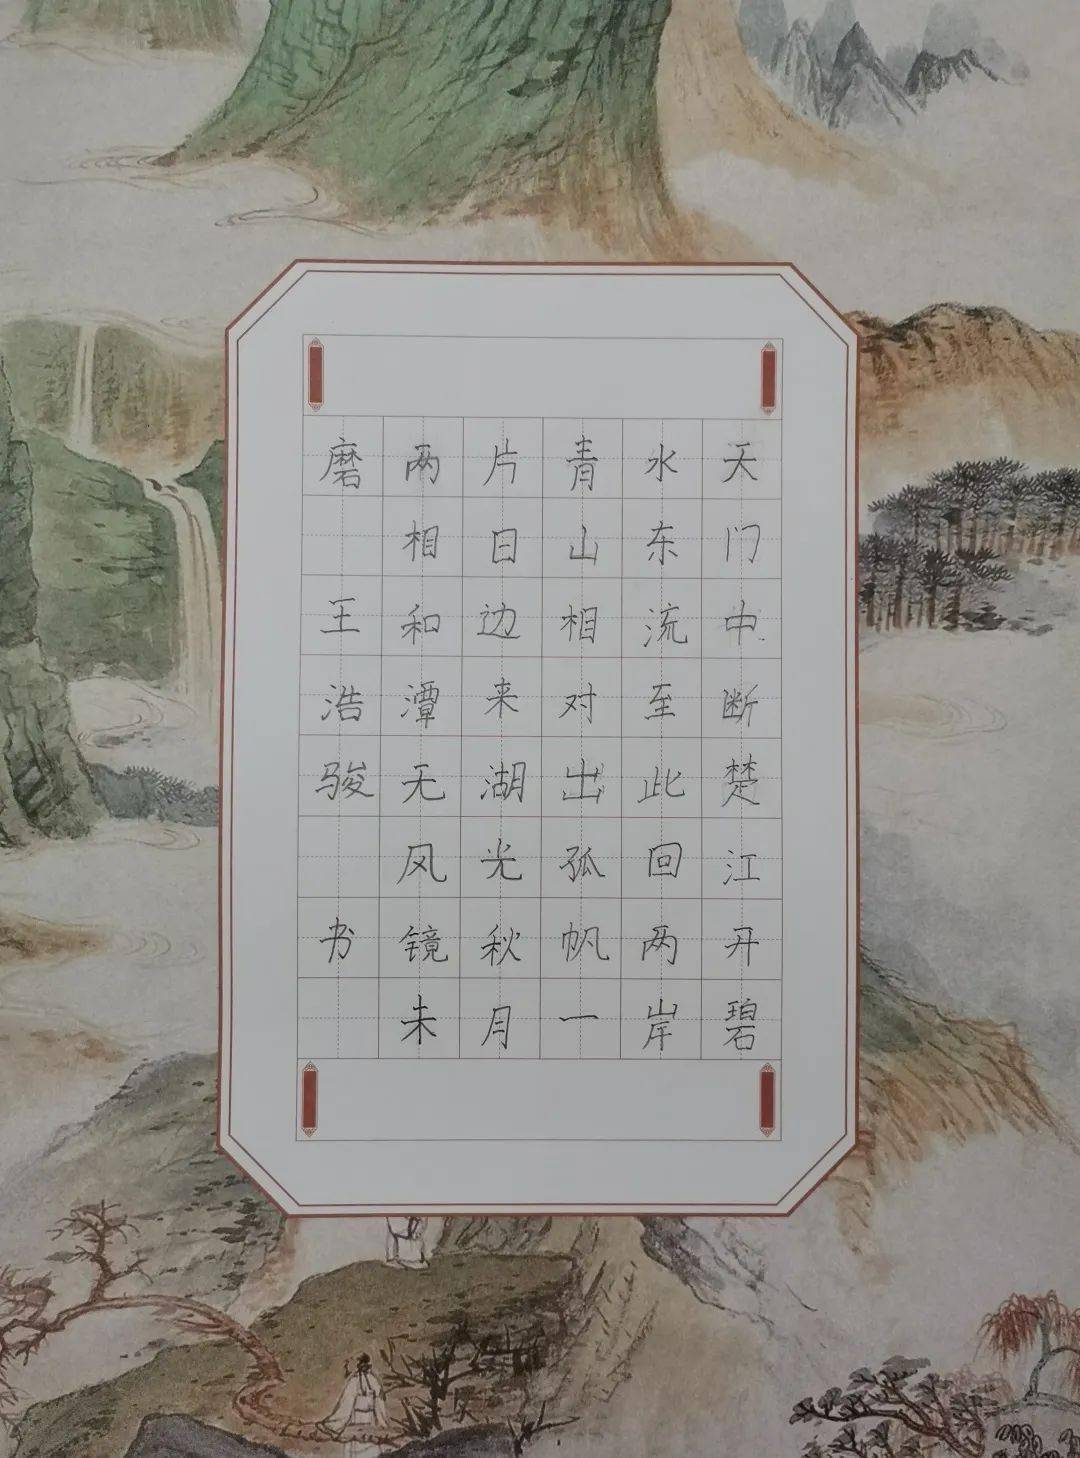 天门中断楚江开碧
水东流至此回两岸
青山相对出孤帆一
片日边来湖光秋月
两相和潭无风镜未
磨 王浩骏 书